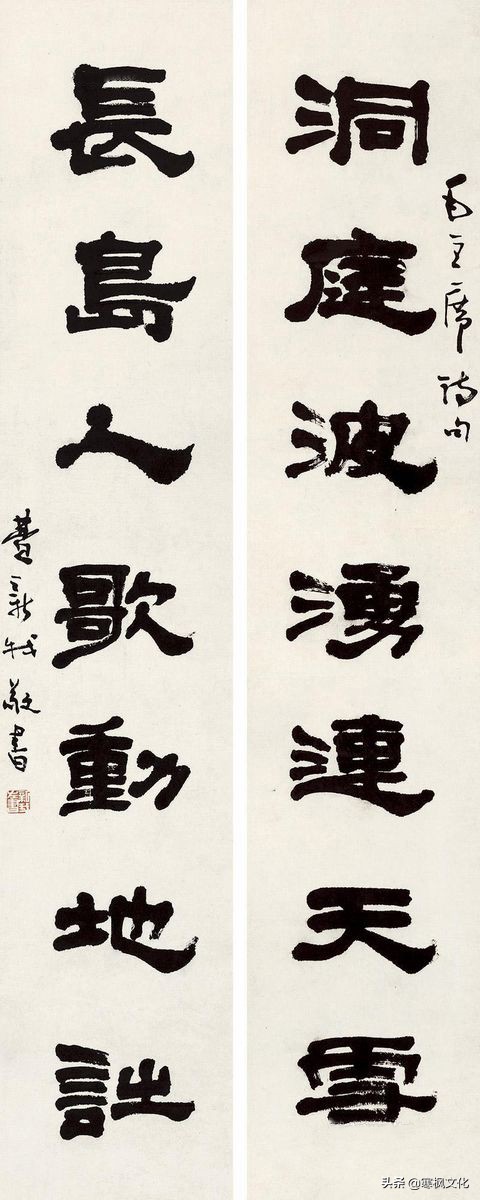 毛主席詩句
洞庭波湧連天雪
長島人歌動地詩
費新我敬書
头条 @寒枫文化